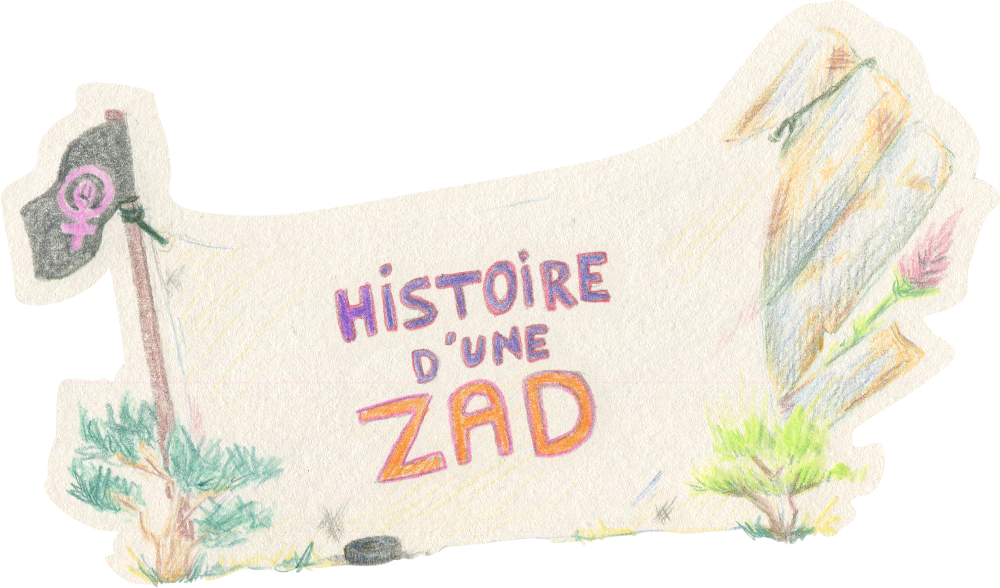 HiSTOiRE
D'UNE
ZAD